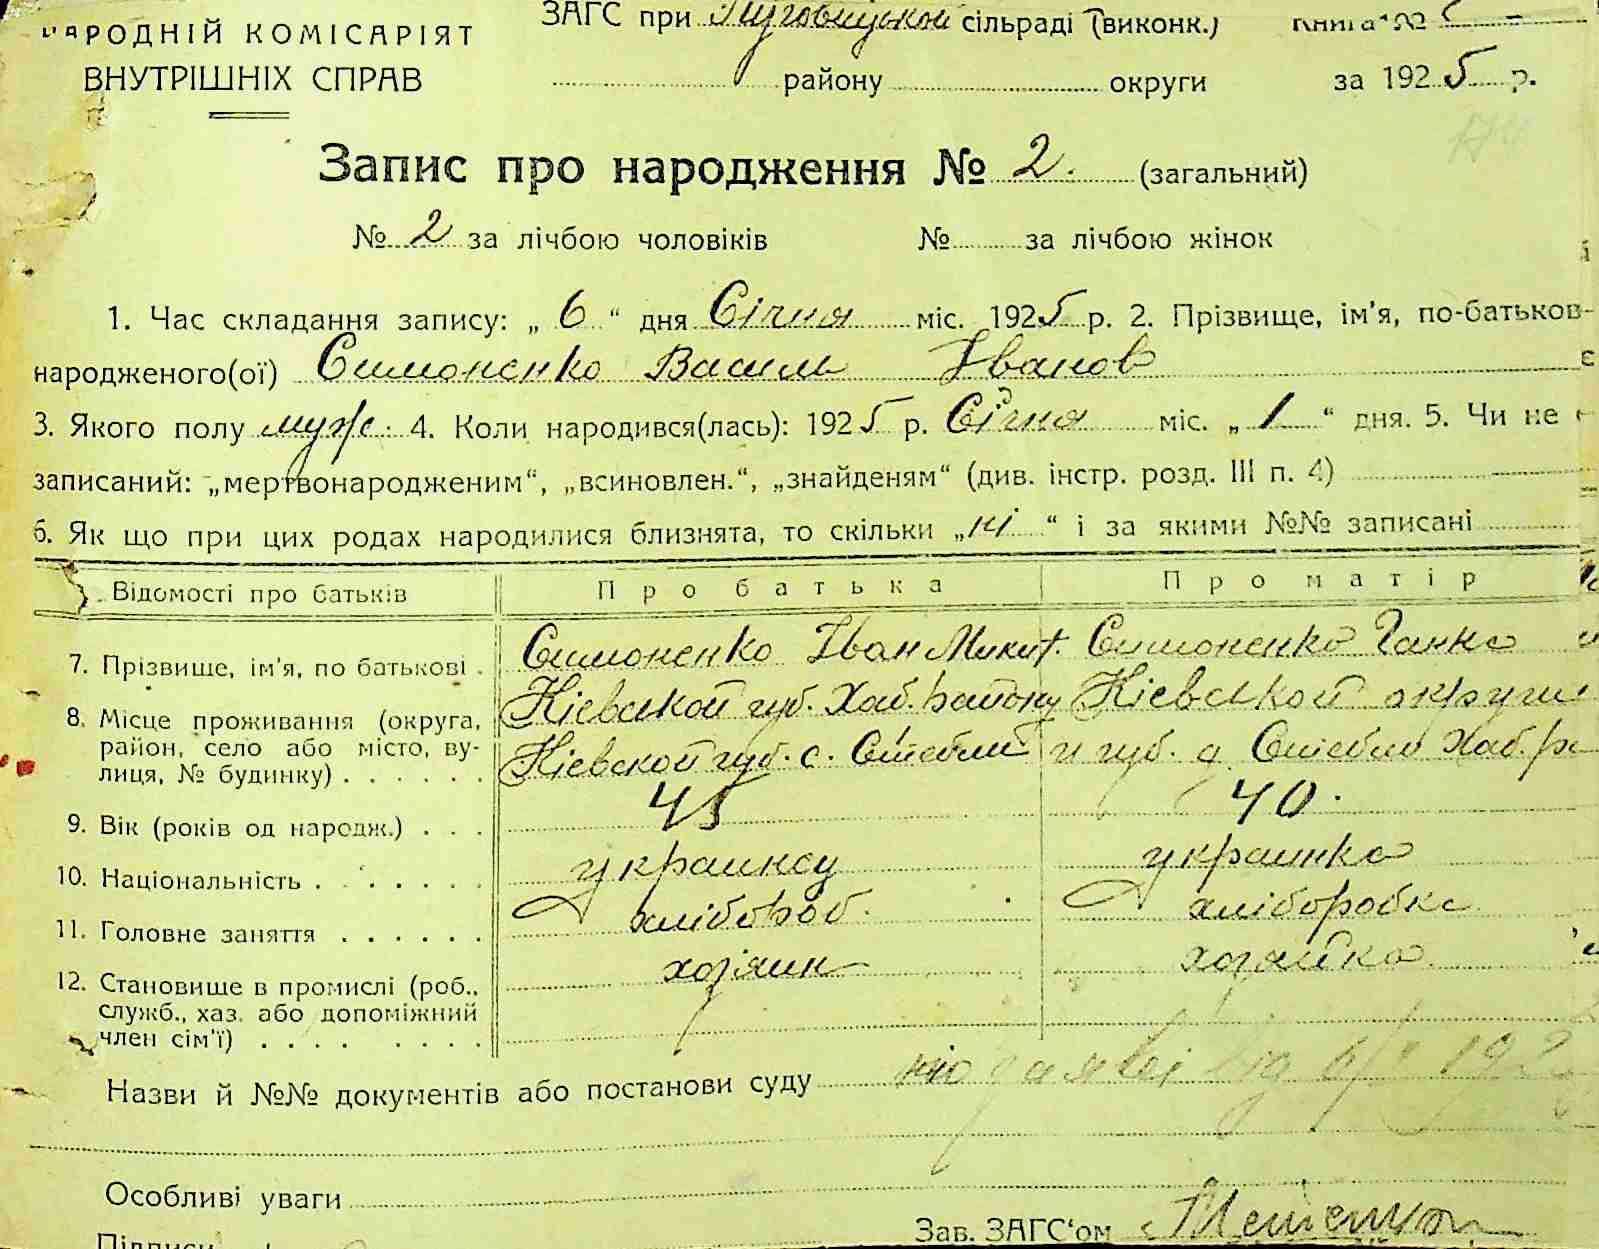 НАРОДНІЙ КОМІСАРІЯТ
ВНУТРІШНІХ СПРАВ
ЗАГС при сільраді (виконк.) Книга №
району округи за 1925 р.
Запис про народження № 2. (загальний)
№ 2 за лічбою чоловіків № за лічбою жінок
1. Час складання запису: „ 6 “ дня Січня міс. 1925 р. 2. Прізвище, ім'я, по-батьков-
народженого(ої) Симоненко Василь Іванов
3. Якого полу муж. 4. Коли народився(лась): 1925 р. Січня міс. „ 1 “ дня. 5. Чи не є
записаний: „мертвонародженим“, „всиновлен.“, „знайденям“ (див. інстр. розд. III п. 4)
6. Як що при цих родах народилися близнята, то скільки „ні “ і за якими №№ записані
Відомості про батьків Про батька Про матір
7. Прізвище, ім'я, по батькові . Симоненко Іван Микит. Симоненко Ганна
8. Місце проживання (округа, Кіевской губ. Хаб. району Кіевской округи
район, село або місто, ву- Кіевской губ. с. Стебли и губ. с. Стебли Хаб. р
лиця, № будинку) . . . . . .
9. Вік (років од народж.) . . . 45 40.
10. Національність . . . . . . . украинец украинка
11. Головне заняття . . . . . . хлібороб. хліборобка
12. Становище в промислі (роб., хозяин хозяйка
служб., хаз. або допоміжний
член сім'ї) . . . . . . . .
Назви й №№ документів або постанови суду по заяві від
Особливі уваги
Зав. ЗАГС'ом
Підписи